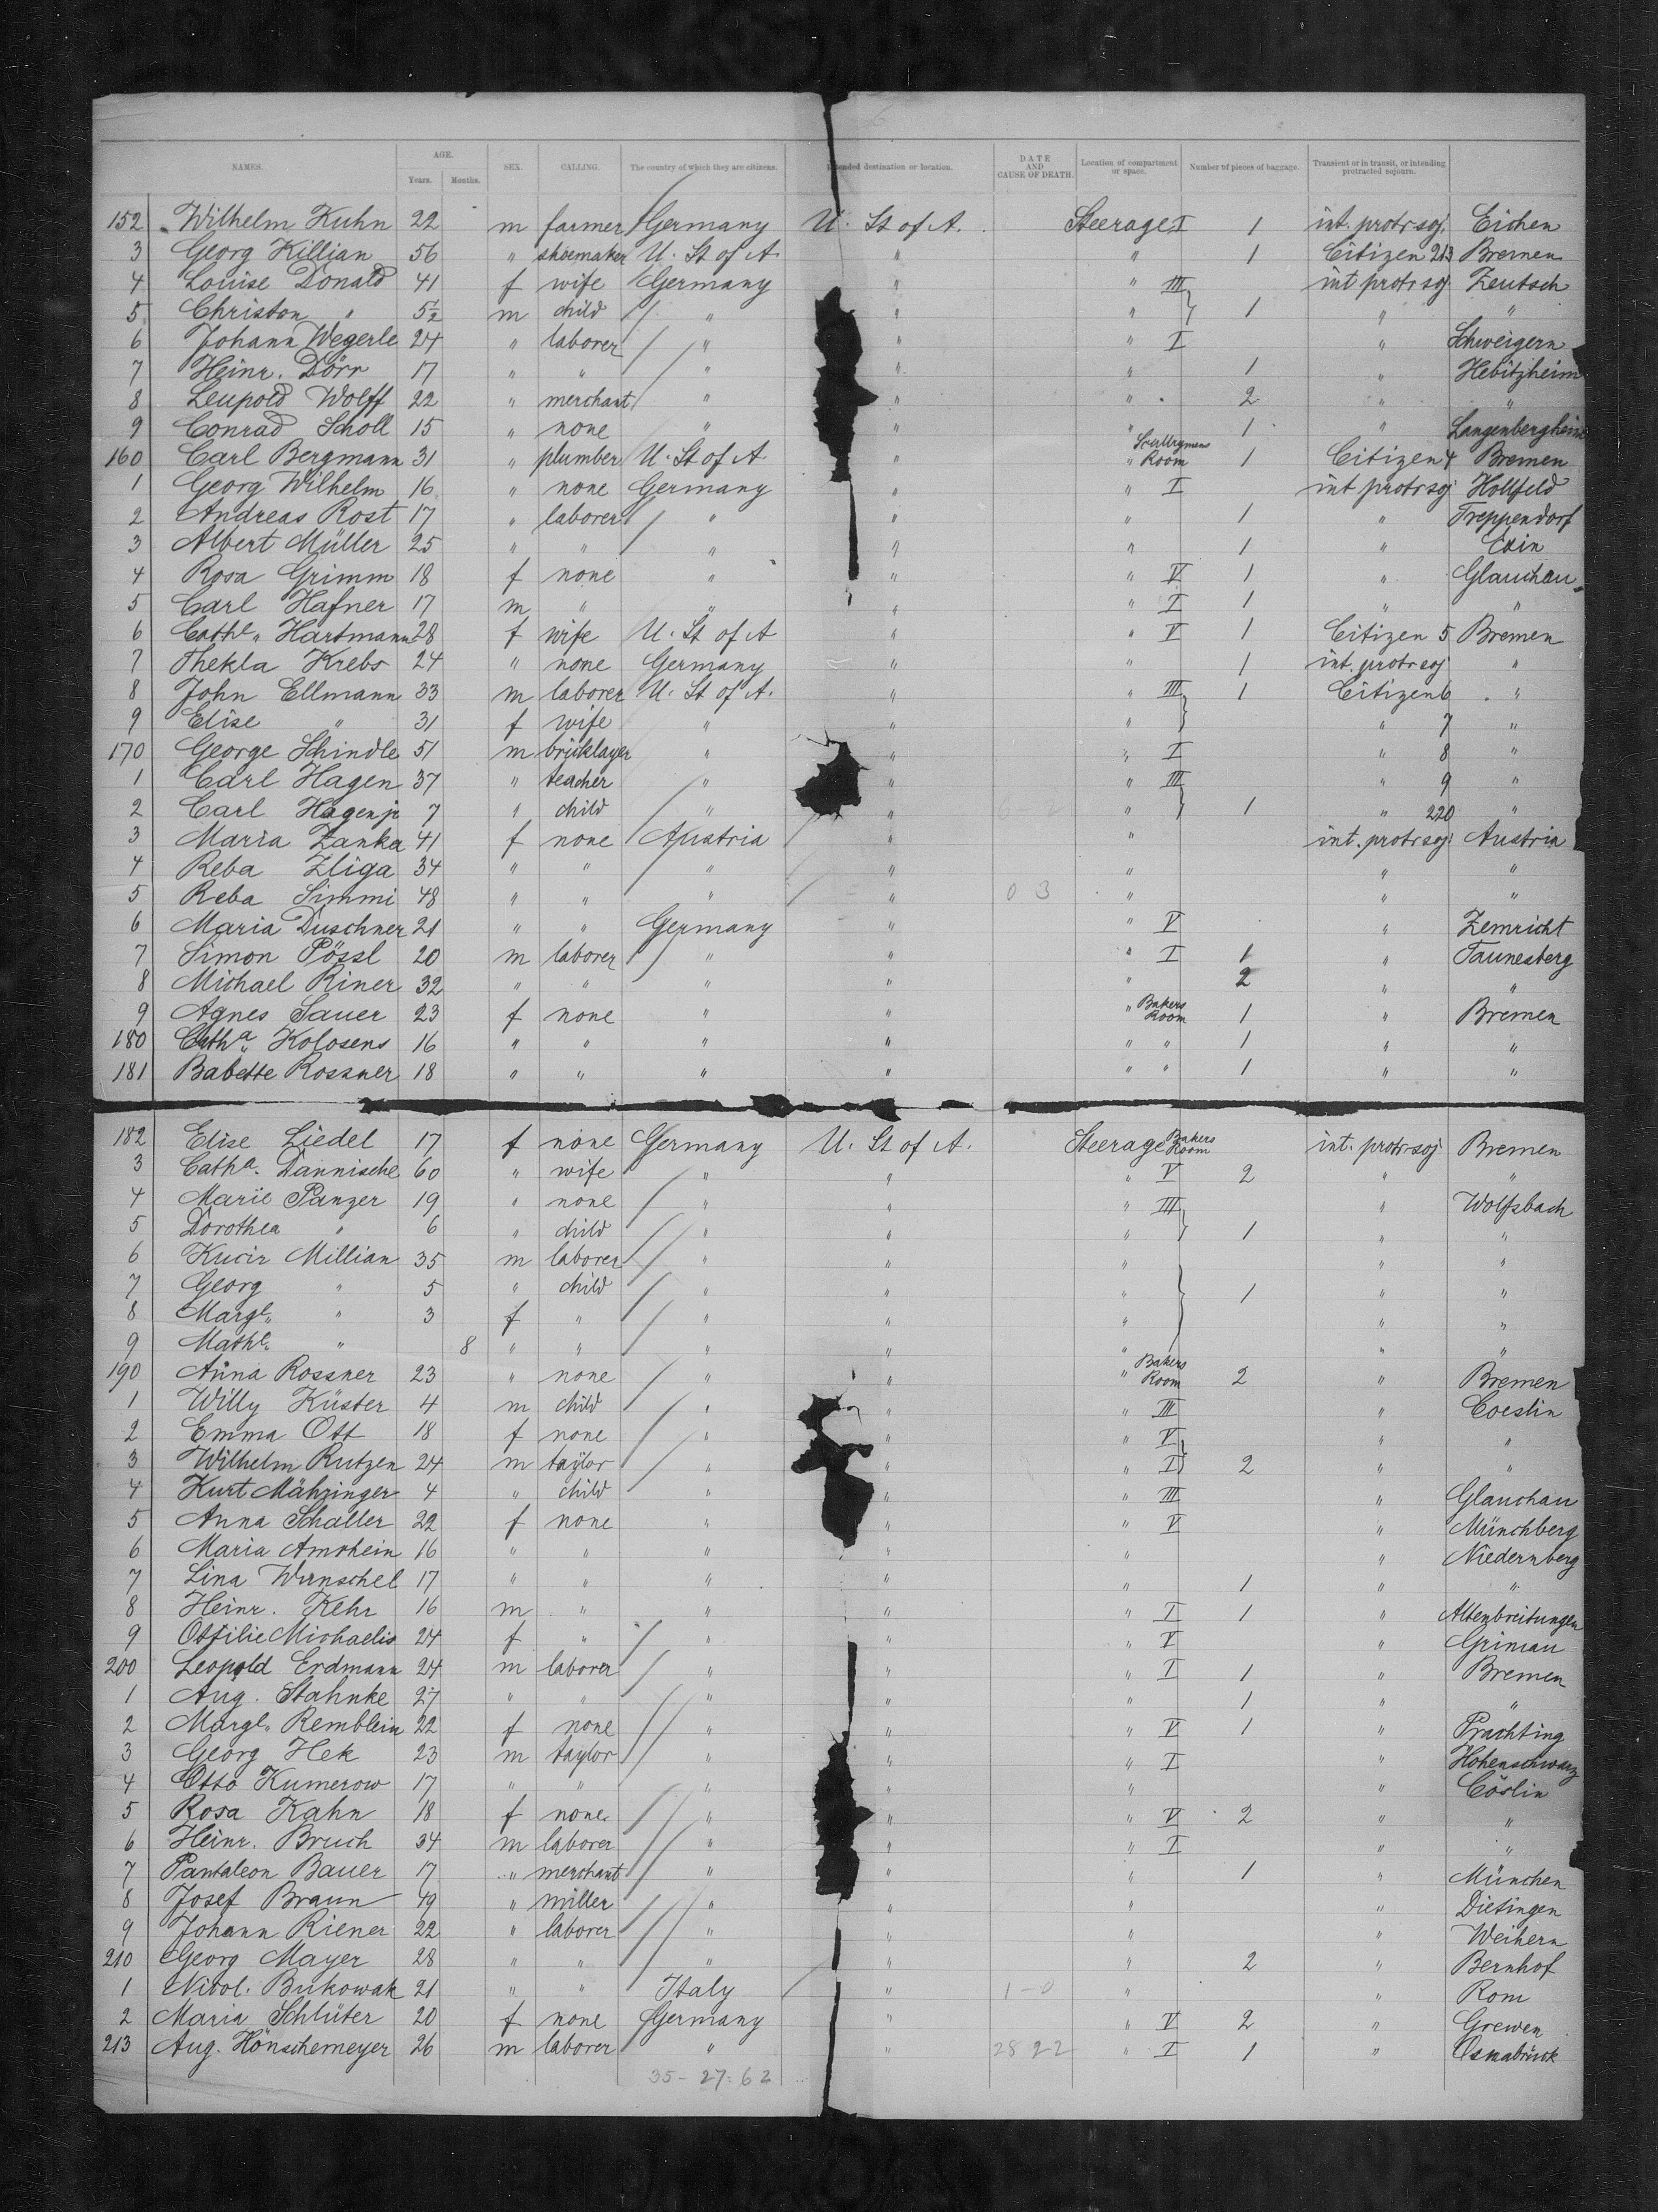 6
NAMES. AGE. Years. Months. SEX. CALLING. The country of which they are citizens. Intended destination or location. DATE AND CAUSE OF DEATH. Location of compartment or space. Number of pieces of baggage. Transient or in transit, or intending protracted sojourn.
152 Wilhelm Kuhn 22 m farmer Germany U. St of A. Steerage I 1 int. protr soj. Eichen
3 Georg Killian 56 " shoemaker U. St of A " " 1 Citizen 213 Bremen
4 Louise Donald 41 f wife Germany " " III int protr soj Zeutsch
5 Christon " 5½ m child " " " 1 " "
6 Johann Wegerle 24 " laborer " " " I " Schweigern
7 Heinr. Dörr 17 " " " " " 1 " Hebitzheim
8 Leupold Wolff 22 " merchant " " " 2 " "
9 Conrad Scholl 15 " none " " " 1 " Langenbergheim
160 Carl Bergmann 31 " plumber U. St of A " " Room 1 Citizen 4 Bremen
1 Georg Wilhelm 16 " none Germany " " I int protr soj Hollfeld
2 Andreas Rost 17 " laborer " " " 1 " Treppendorf
3 Albert Müller 25 " " " " " 1 " Exin
4 Rosa Grimm 18 f none " " " V 1 " Glauchau
5 Carl Hafner 17 m " " " " I 1 " "
6 Cathe. Hartmann 28 f wife U. St of A " " V 1 Citizen 5 Bremen
7 Thekla Krebs 24 " none Germany " " 1 int. protr soj "
8 John Ellmann 33 m laborer U. St of A. " " III 1 Citizen 6 "
9 Elise " 31 f wife " " " " 7 "
170 George Schindle 51 m bricklayer " " " I " 8 "
1 Carl Hagen 37 " teacher " " " III " 9 "
2 Carl Hagen jr 7 " child " " " 1 " 220 "
3 Maria Zanka 41 f none Austria " " int. protr soj. Austria
4 Reba Zliga 34 " " " " " " "
5 Reba Simmi 48 " " " " 0 3 " " "
6 Maria Duschner 21 " " Germany " " V " Zemricht
7 Simon Pössl 20 m laborer " " " I 1 " Taunesberg
8 Michael Riner 32 " " " " " 2 " "
9 Agnes Sauer 23 f none " " " Bakers Room 1 " Bremen
180 Catha Kolosens 16 " " " " " " 1 " "
181 Babette Rossner 18 " " " " " " 1 " "
182 Elise Liedel 17 f none Germany U. St of A. Steerage Bakers Room int. protr soj Bremen
3 Catha. Dannische 60 " wife " " " V 2 " "
4 Marie Panzer 19 " none " " " III " Wolfsbach
5 Dorothea " 6 " child " " " 1 " "
6 Kucir Millian 35 m laborer " " " " "
7 Georg " 5 " child " " " 1 " "
8 Marge. " 3 f " " " " " "
9 Mathe. " 8 " " " " " "
190 Anna Rossner 23 " none " " " Bakers Room 2 " Bremen
1 Willy Küster 4 m child " " " III " Coeslin
2 Emma Ott 18 f none " " V " "
3 Wilhelm Rutzen 24 m taylor " " " I 2 " "
4 Kurt Mähringer 4 " child " " " III " Glauchau
5 Anna Schaller 22 f none " " " V " Münchberg
6 Maria Amrhein 16 " " " " " " Niedernberg
7 Lina Wunschel 17 " " " " " 1 " "
8 Heinr. Kehr 16 m " " " " I 1 " Altenbreitungen
9 Ottilie Michaelis 24 f " " " " V " Grimau
200 Leopold Erdmann 24 m laborer " " " I 1 " Bremen
1 Aug. Stahnke 27 " " " " " 1 " "
2 Marge. Remblein 22 f none " " " V 1 " Prachting
3 Georg Hek 23 m taylor " " " I " Hohenschwarz
4 Otto Kumerow 17 " " " " " " Cöslin
5 Rosa Kahn 18 f none " " " V 2 " "
6 Heinr. Bruch 34 m laborer " " " I " "
7 Pantaleon Bauer 17 " merchant " " " 1 " München
8 Josef Braun 49 " miller " " " " Dietingen
9 Johann Riener 22 " laborer " " " " Weihern
210 Georg Mayer 28 " " " " " 2 " Bernhof
1 Nicol. Bukowak 21 " " Italy " 1-0 " " Rom
2 Maria Schlüter 20 f none Germany " " V 2 " Grewen
213 Aug. Hönschemeyer 26 m laborer " " 28 22 " I 1 " Osnabrück
35-27=62